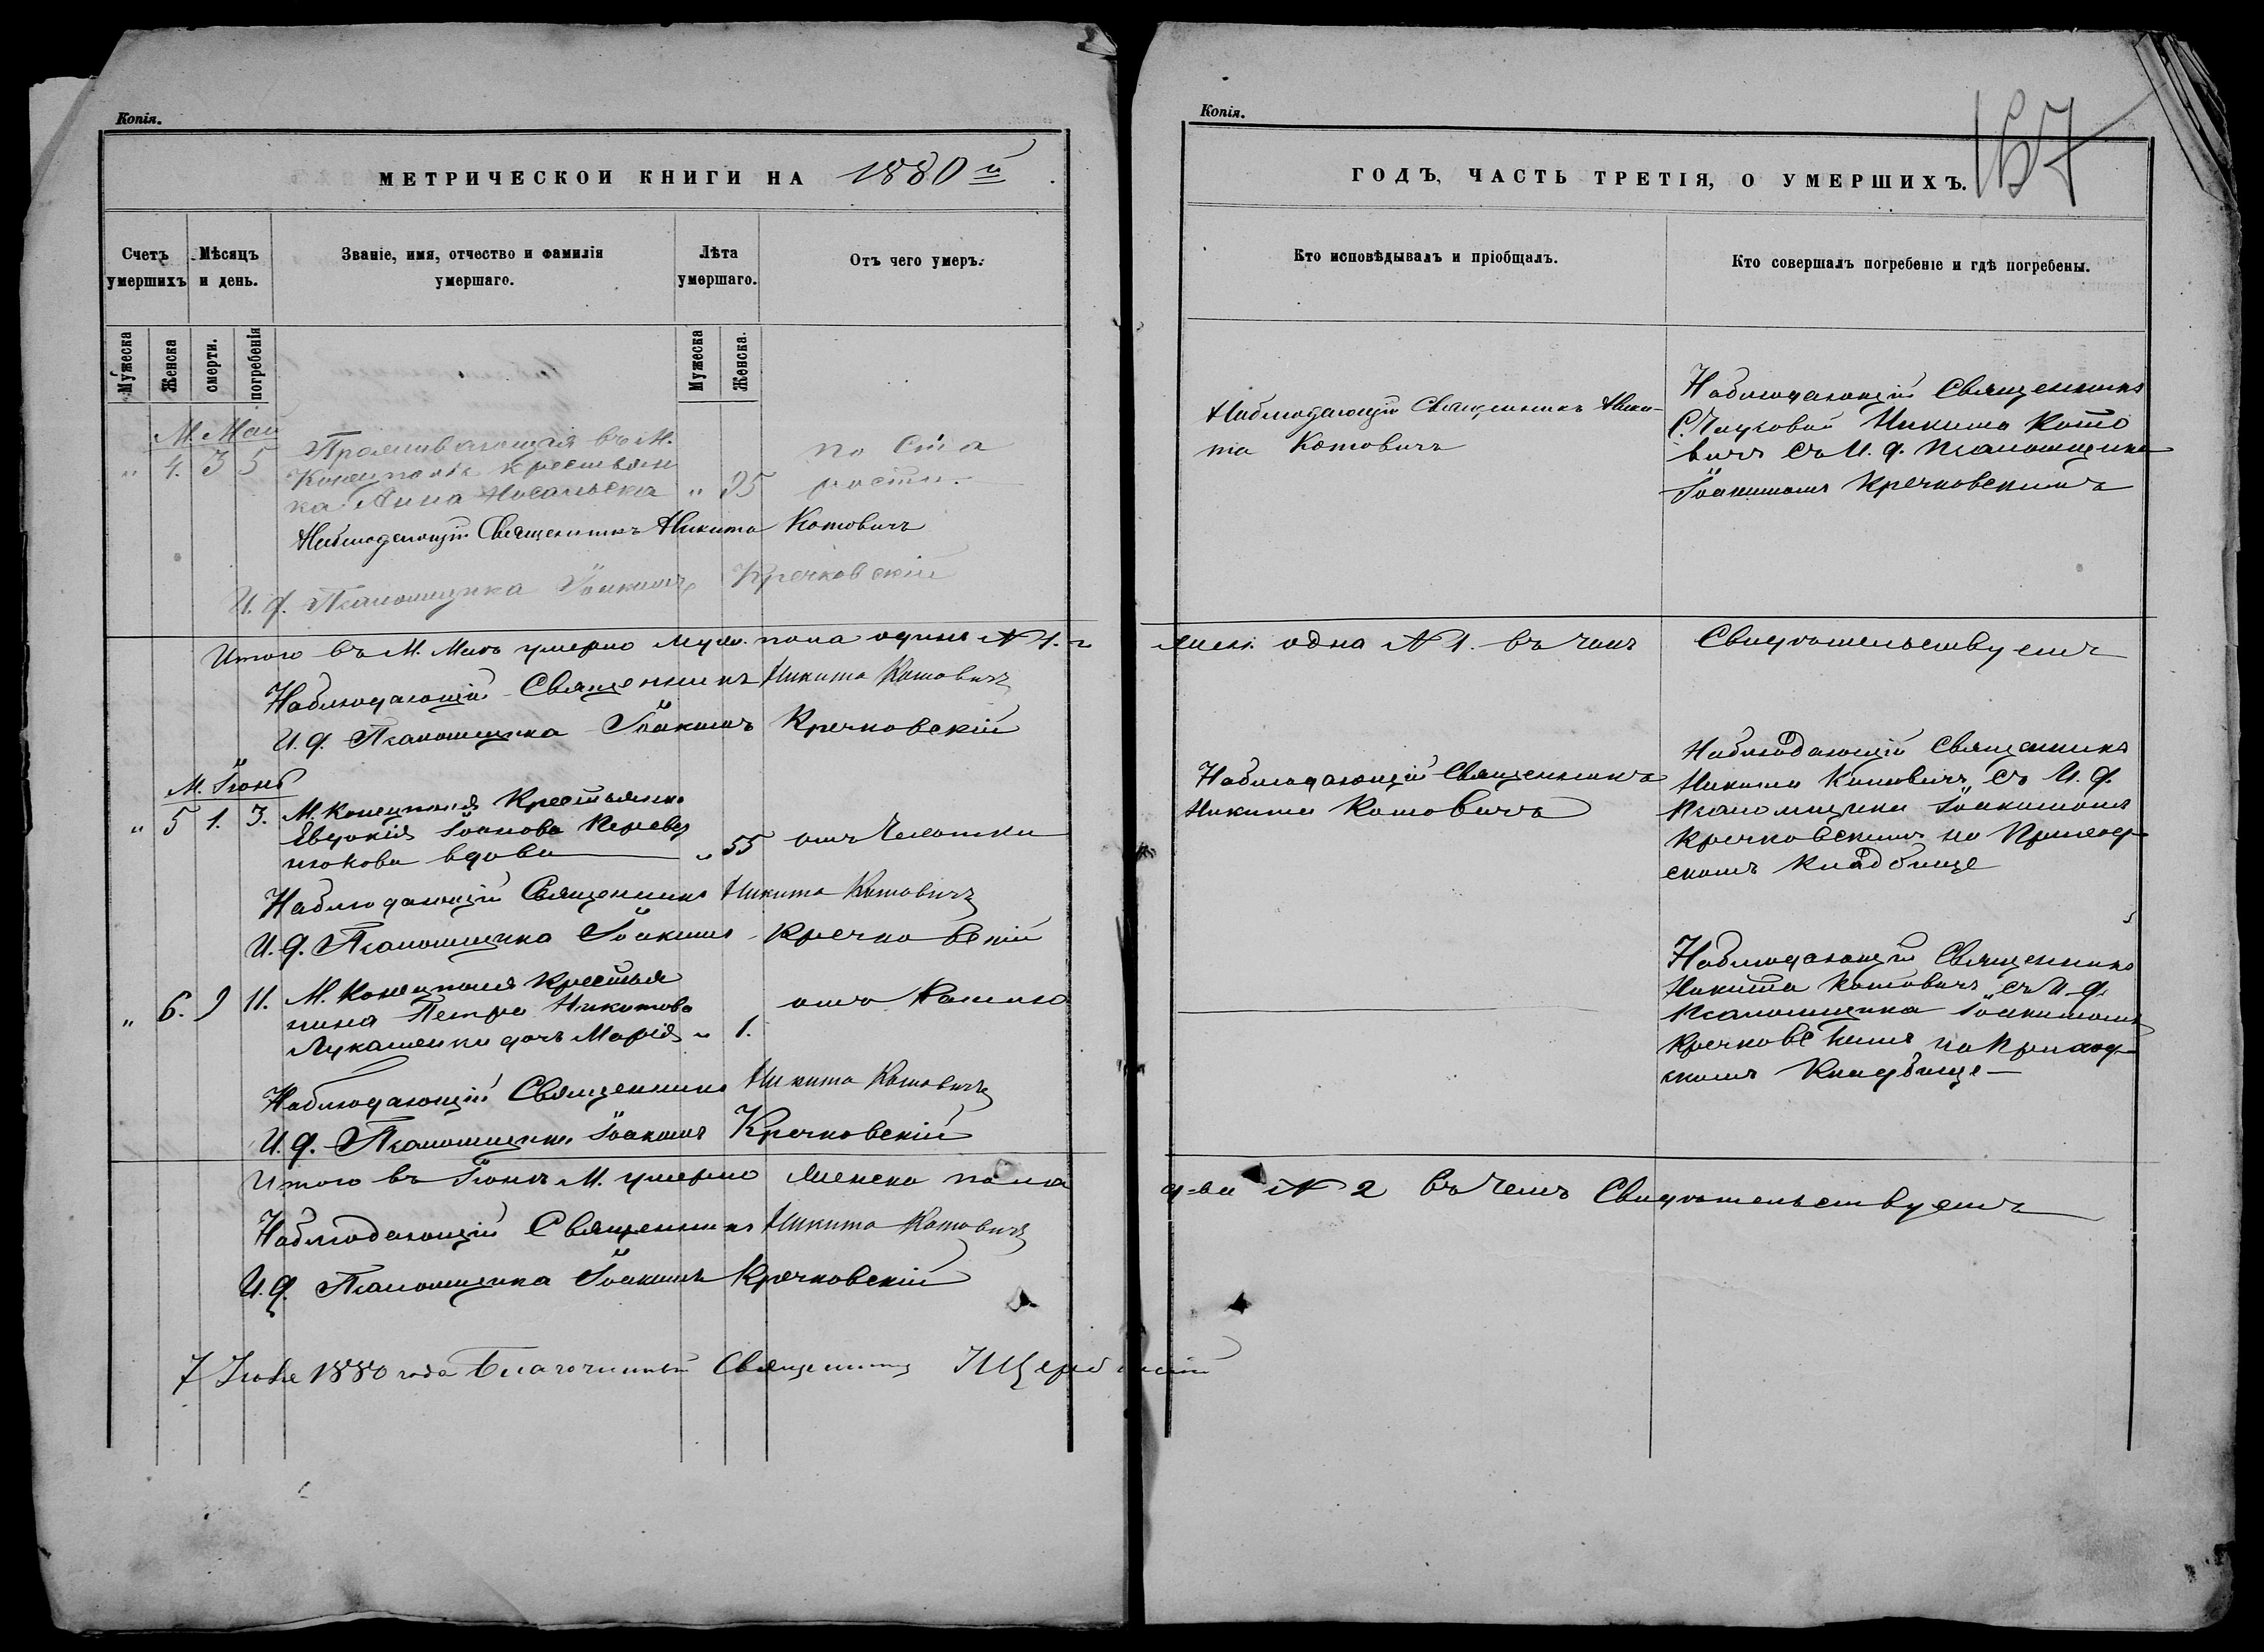 Копія.
МЕТРИЧЕСКОЙ КНИГИ НА 1880й
Счетъ умершихъ
Мѣсяцъ и день.
Званіе, имя, отчество и фамилія умершаго.
Лѣта умершаго.
Отъ чего умеръ.
Мужеска
Женска
смерти.
погребенія
Мужеска
Женска.
М. Май
" 4. 3 5 Проживающая въ М. по ста
Конецполѣ крестьян
ка Анна " 95 рости.
Наблюдающій Священникъ Никита Котовичъ
И. д. Псаломщика Іоакимъ Кречковскій
Итого въ М. Маѣ умерло муж. пола одинъ № 1. и
Наблюдающій Священникъ Никита Котовичъ
И. д. Псаломщика Іоакимъ Кречковскій
М. Іюнь
" 5 1. 3. М. Конецполя Крестьянка
Евдокія Іоанова
вдова " 55 отъ Чахотки
Наблюдающій Священникъ Никита Котовичъ
И. д. Псаломщика Іоакимъ Кречковскій
" 6. 9 11. М. Конецполя Крестья
нина Петра Никитова отъ Кашлю
Лукашенки дочь Марія " 1.
Наблюдающій Священникъ Никита Котовичъ
И. д. Псаломщика Іоакимъ Кречковскій
Итого въ Іюнѣ М. умерло женска пола
Наблюдающій Священникъ Никита Котовичъ
И. д. Псаломщика Іоакимъ Кречковскій
7 1880 года Благочинный Священникъ
Копія.
157
ГОДЪ, ЧАСТЬ ТРЕТІЯ, О УМЕРШИХЪ.
Кто исповѣдывалъ и пріобщалъ.
Кто совершалъ погребеніе и гдѣ погребены.
Наблюдающій Священникъ Ники-
та Котовичъ
Наблюдающій Священникъ
С. Никита Кото
вичъ съ И. д. Псаломщика
Іоакимомъ Кречковскимъ
жен. одна № 1. въ чемъ Свидѣтельствуемъ
Наблюдающій Священникъ
Никита Котовичъ
Наблюдающій Священникъ
Никита Котовичъ съ И. д.
Псаломщика Іоакимомъ
Кречковскимъ на Приход-
скомъ Кладбище
Наблюдающій Священникъ
Никита Котовичъ съ И. д.
Псаломщика Іоакимомъ
Кречковскимъ на Приход-
скомъ Кладбище
д-ва № 2 въ чемъ Свидѣтельствуемъ